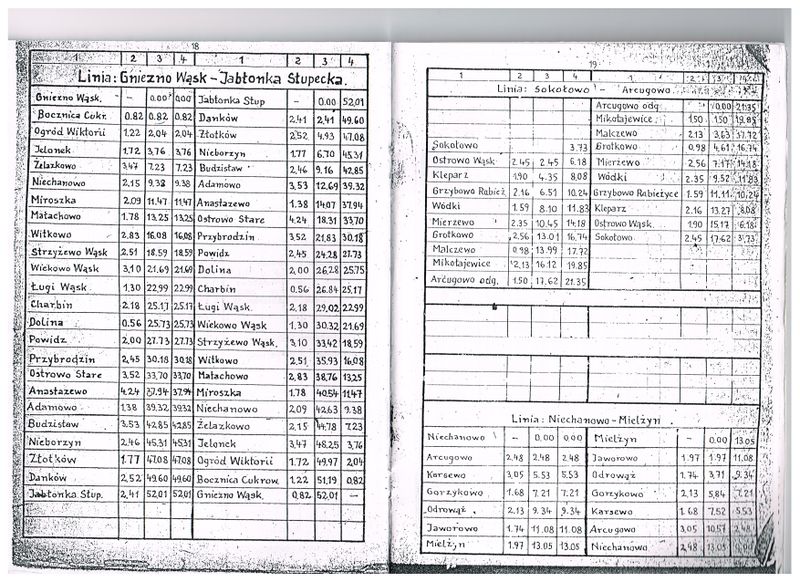 18
1 2 3 4 1 2 3 4
Linia: Gniezno Wąsk – Jabłonka Słupecka.
Gniezno Wąsk. – 0.00 0.00 Jabłonka Słup – 0.00 52,01
Bocznica Cukr. 0.82 0.82 0.82 Danków 2,41 2,41 49.60
Ogród Wiktorii 1.22 2,04 2,04 Złotków 2.52 4,93 47.08
Jelonek 1.72 3,76 3,76 Nieborzyn 1.77 6,70 45.31
Żelazkowo 3,47 7.23 7.23 Budzisław 2,46 9,16 42,85
Niechanowo 2,15 9.38 9.38 Adamowo 3,53 12,69 39,32
Miroszka 2,09 11,47 11,47 Anastazewo 1.38 14,07 37,94
Małachowo 1.78 13,25 13,25 Ostrowo Stare 4,24 18,31 33,70
Witkowo 2,83 16,08 16,08 Przybrodzin 3,52 21,83 30,18
Strzyżewo Wąsk 2,51 18.59 18.59 Powidz 2,45 24,28 27.73
Wiekowo Wąsk 3,10 21,69 21,69 Dolina 2,00 26,28 25,75
Ługi Wąsk. 1.30 22,99 22,99 Charbin 0,56 26,84 25,17
Charbin 2,18 25,17 25,17 Ługi Wąsk. 2,18 29,02 22,99
Dolina 0.56 25,73 25,73 Wiekowo Wąsk 1,30 30,32 21,69
Powidz 2,00 27.73 27.73 Strzyżewo Wąsk. 3,10 33,42 18,59
Przybrodzin 2,45 30.18 30.18 Witkowo 2,51 35,93 16,08
Ostrowo Stare 3,52 33,70 33,70 Małachowo 2,83 38,76 13,25
Anastazewo 4,24 37.94 37.94 Miroszka 1.78 40,54 11,47
Adamowo 1.38 39,32 39,32 Niechanowo 2,09 42,63 9.38
Budzisław 3.53 42,85 42,85 Żelazkowo 2,15 44,78 7,23
Nieborzyn 2,46 45,31 45,31 Jelonek 3,47 48,25 3,76
Złotków 1.77 47,08 47,08 Ogród Wiktorii 1.72 49,97 2,04
Danków 2,52 49,60 49,60 Bocznica Cukrow. 1,22 51,19 0,82
Jabłonka Słup. 2,41 52,01 52,01 Gniezno Wąsk. 0,82 52,01 –
19
1 2 3 4 1 2 3 4
Linia: Sokołowo – Arcugowo
Arcugowo odg. 0,00 21.35
Mikołajewice 1.50 1.50 19.85
Malczewo 2.13 3,63 17,72
Sokołowo 3.73 Grotkowo 0.98 4,61 16,74
Ostrowo Wąsk 2.45 2.45 6.18 Mierzewo 2.56 7.17 14.18
Kleparz 1.90 4.35 8,08 Wódki 2.35 9.52 11.83
Grzybowo Rabież. 2.16 6.51 10,24 Grzybowo Rabieżyce 1.59 11.11 10,24
Wódki 1.59 8.10 11.83 Kleparz 2.16 13.27 8,08
Mierzewo 2.35 10.45 14.18 Ostrowo Wąsk. 1.90 15,17 6.18
Grotkowo 2.56 13.01 16,74 Sokołowo 2.45 17.62 3.73
Malczewo 0.98 13.99 17.72
Mikołajewice 2.13 16.12 19.85
Arcugowo odg. 1.50 17,62 21.35
Linia: Niechanowo – Mielżyn.
Niechanowo – 0.00 0.00 Mielżyn – 0,00 13.05
Arcugowo 2.48 2.48 2.48 Jaworowo 1.97 1.97 11,08
Karsewo 3,05 5.53 5.53 Odrowąż 1.74 3,71 9.34
Gorzykowo 1.68 7.21 7.21 Gorzykowo 2,13 5,84 7.21
Odrowąż 2.13 9.34 9.34 Karsewo 1.68 7.52 5.53
Jaworowo 1.74 11.08 11.08 Arcugowo 3,05 10,57 2.48
Mielżyn 1.97 13.05 13.05 Niechanowo 2,48 13.05